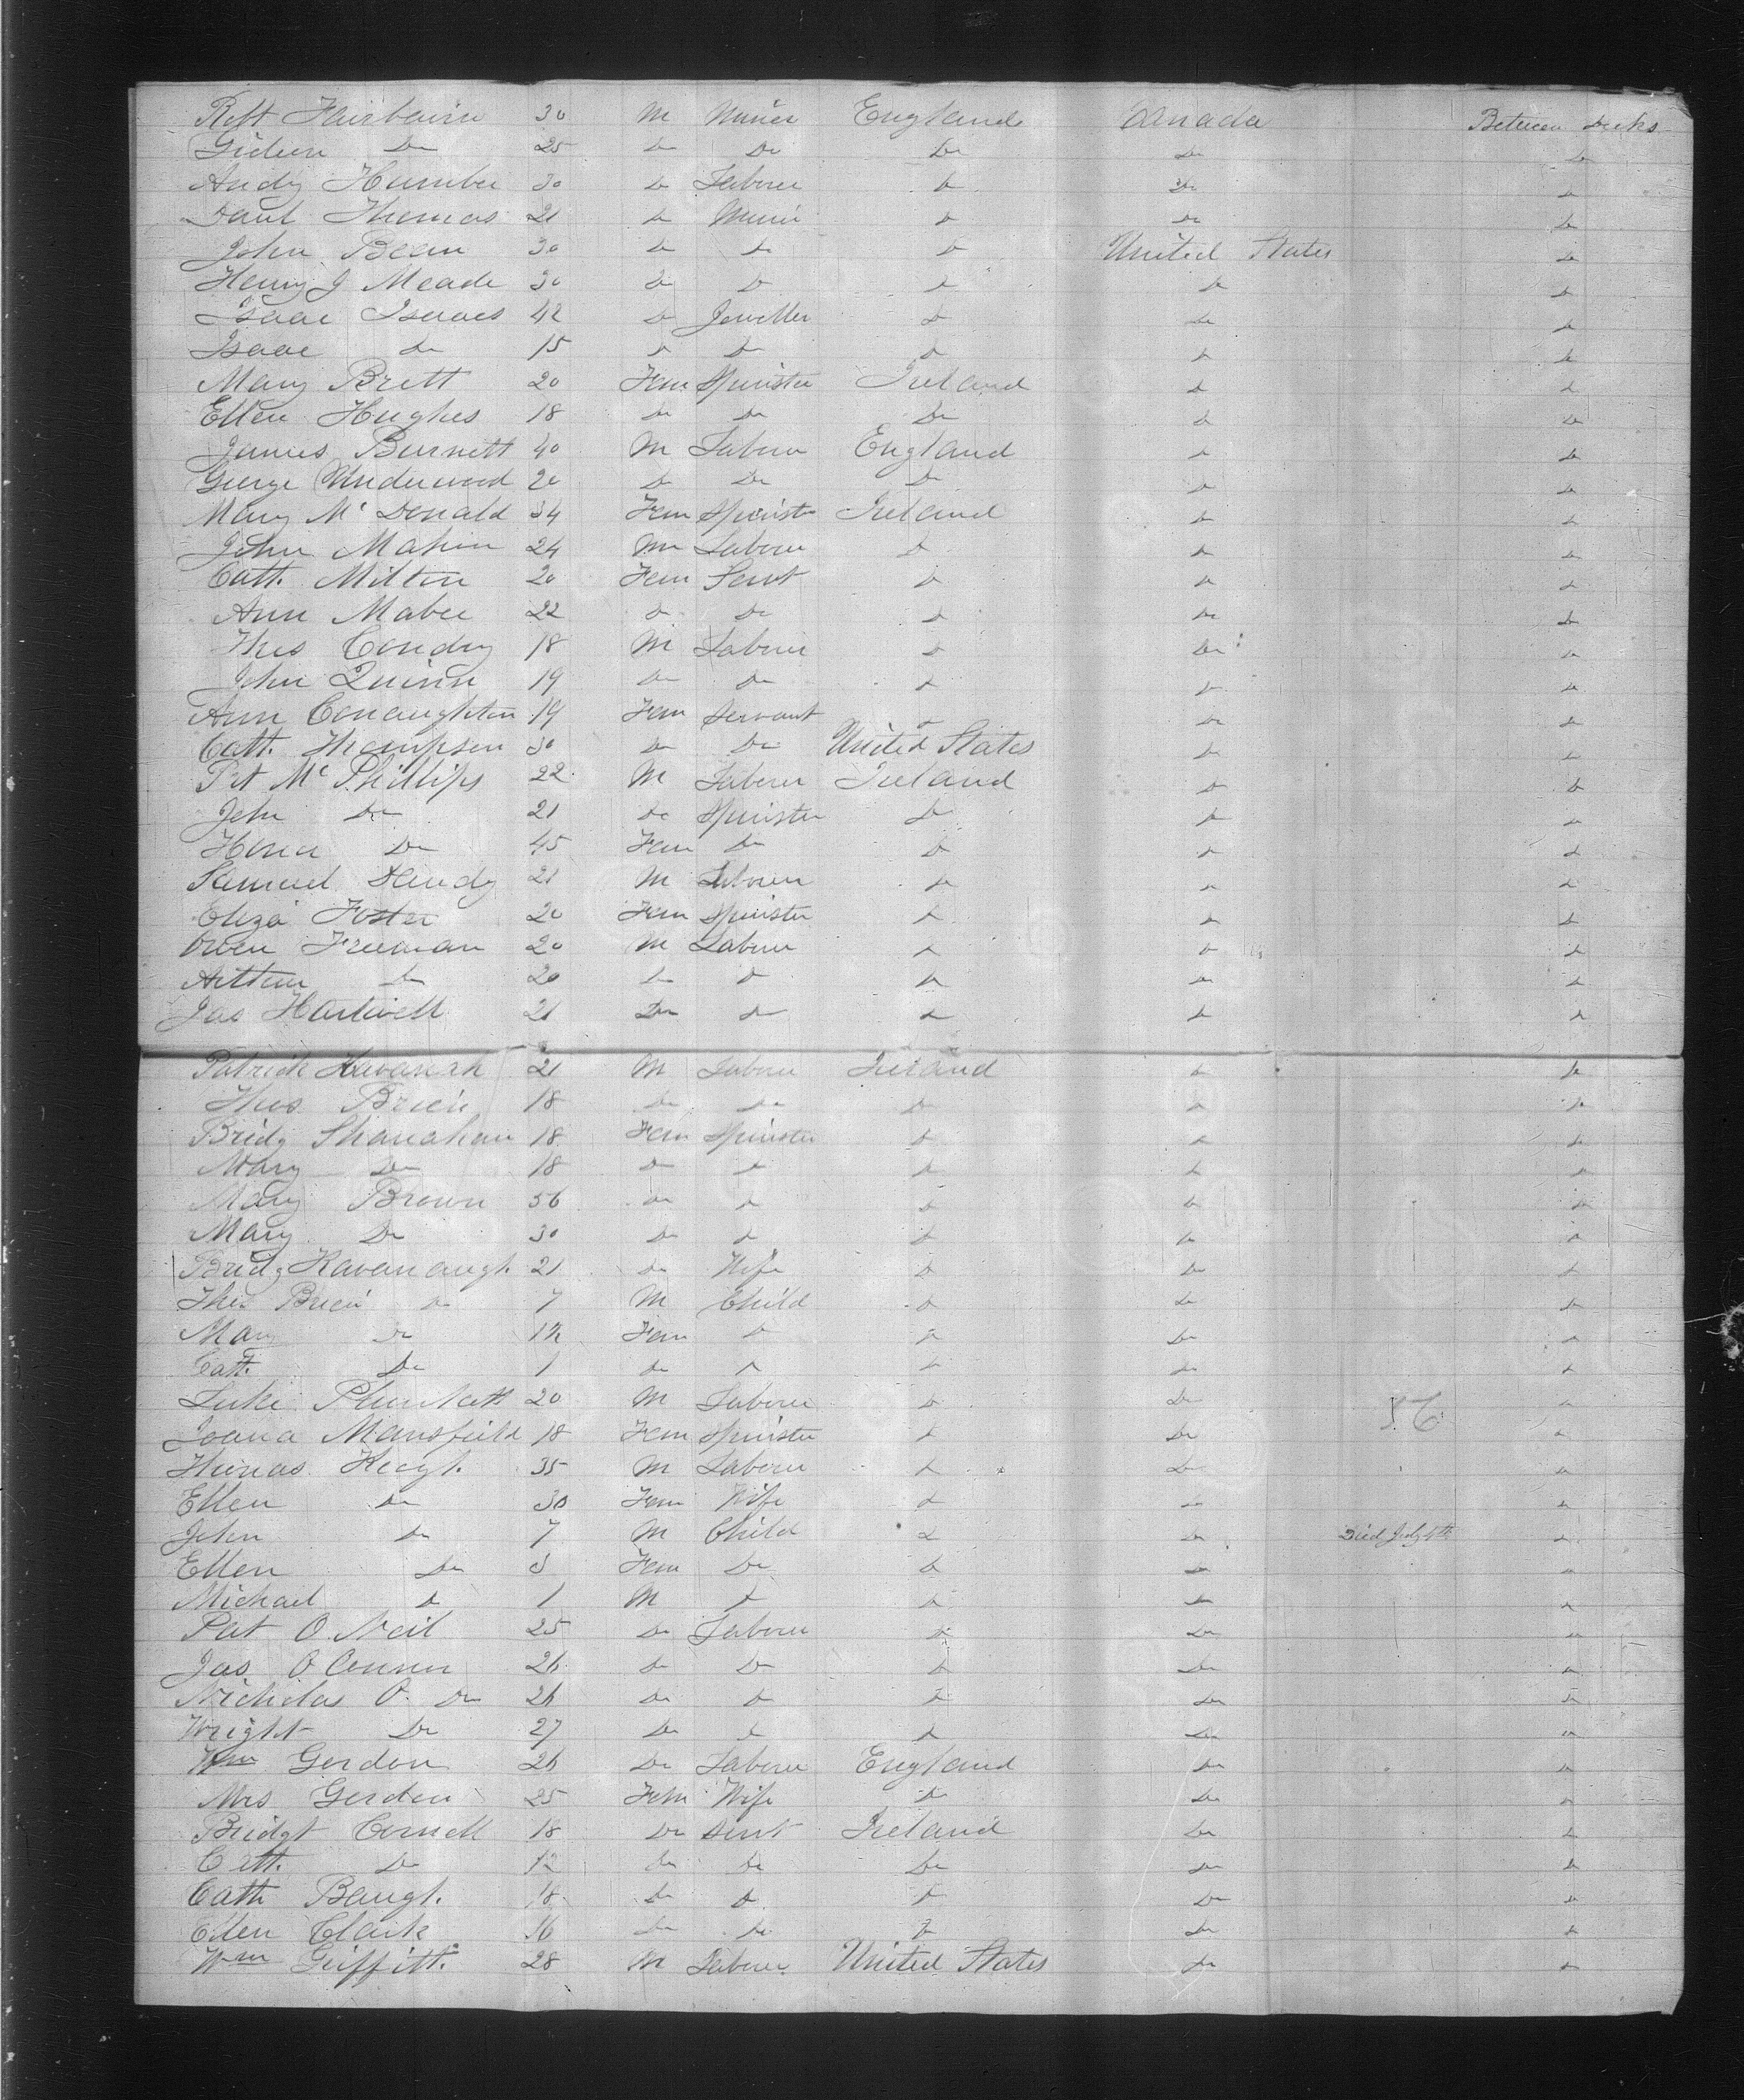 Robt Fairbairn 30 M Miner England Canada Between Decks
Gideon Do 25 Do Do Do Do Do
Andy Humber 30 Do Laborer Do Do Do
Paul Thomas 21 Do Miner Do Do Do
John Bean 30 Do Do Do United States Do
Henry J Meade 30 Do Do Do Do Do
Isaac Isaacs 42 Do Jeweller Do Do Do
Isaac Do 15 Do Do Do Do Do
Mary Brett 20 Fem Spinster Ireland Do Do
Ellen Hughes 18 Do Do Do Do Do
James Burnett 40 M Laborer England Do Do
George Underwood 20 Do Do Do Do Do
Mary Mc Donald 34 Fem Spinst Ireland Do Do
John Mahon 24 M Laborer Do Do Do
Cath. Milton 20 Fem Servt Do Do Do
Ann Mabee 22 Do Do Do Do Do
Thos Condry 18 M Laborer Do Do Do
John Quinn 19 Do Do Do Do Do
Ann Conaughton 19 Fem Servant Do Do Do
Cath. Thompson 30 Do Do United States Do Do
Pat Mc Phillips 22 M Laborer Ireland Do Do
John Do 21 Do Spinster Do Do Do
Honor Do 45 Fem Do Do Do Do
Samuel Hendy 21 M Laborer Do Do Do
Eliza Foster 20 Fem Spinster Do Do Do
Owen Freeman 20 M Laborer Do Do Do
Arthur Do 20 Do Do Do Do Do
Jas Hartwell 21 Do Do Do Do Do
Patrick Kavanah 21 M Laborer Ireland Do Do
Thos Brien 18 Do Do Do Do Do
Bridg Shanahan 18 Fem Spinster Do Do Do
Mary Do 18 Do Do Do Do Do
Mary Brown 56 Do Do Do Do Do
Mary Do 30 Do Do Do Do Do
Bridg Kavanaugh 21 Do Wife Do Do Do
Thos Brien Do 7 M Child Do Do Do
Mary Do Fem Do Do Do Do
Cath. Do 1 Do Do Do Do Do
Luke Plunkett 20 M Laborer Do Do Do
Joana Mansfield 18 Fem Spinster Do Do Do
Thomas Keogh 35 M Laborer Do Do Do
Ellen Do 30 Fem Wife Do Do Do
John Do 7 M Child Do Do Died July 4th Do
Ellen Do 3 Fem Do Do Do Do
Michael Do 1 M Do Do Do Do
Pat O Neil 25 Do Laborer Do Do Do
Jas O Connor 26 Do Do Do Do Do
Nicholas O. Do 26 Do Do Do Do Do
Wright Do 27 Do Do Do Do Do
Wm Gordon 26 Do Laborer England Do Do
Mrs Gordon 25 Fem Wife Do Do Do
Bridgt Cornell 18 Do Servt Ireland Do Do
Cath. Do 12 Do Do Do Do Do
Cath Baugh. 18 Do Do Do Do Do
Ellen Clark 16 Do Do Do Do Do
Wm Griffith. 28 M Laborer United States Do Do